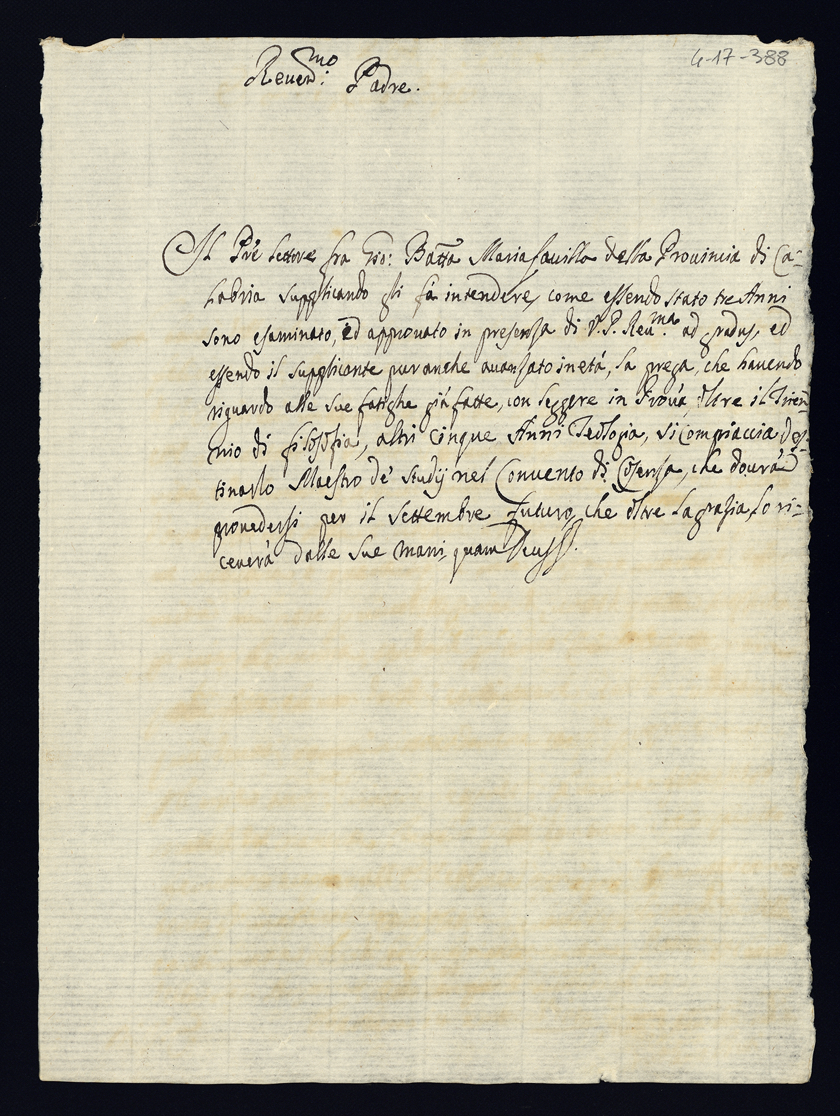 4-17-388
Reuerd:mo Padre.
Il Pre Lettore fra Gio: Batta Maria Fauilla della Prouincia di Ca=
labria supplicando gli fà intendere, come essendo stato tre Anni
sono esaminato, ed approuato in presensa di V. P. Reu:ma ad gradus, ed
essendo il supplicante pur anche auansato in età, la prega, che hauendo
riguardo alle sue fatighe già fatte, con leggere in Prouà, oltre il Trien=
nio di filosofia, altri cinque Anni Teologia, si compiaccia des=
tinarlo Maestro de' Studij nel Conuento di Cosensa, che dourà
prouedersi per il Settembre futuro, che oltre la grasia, lo ri=
ceuerà dalle sue mani, quam Deus